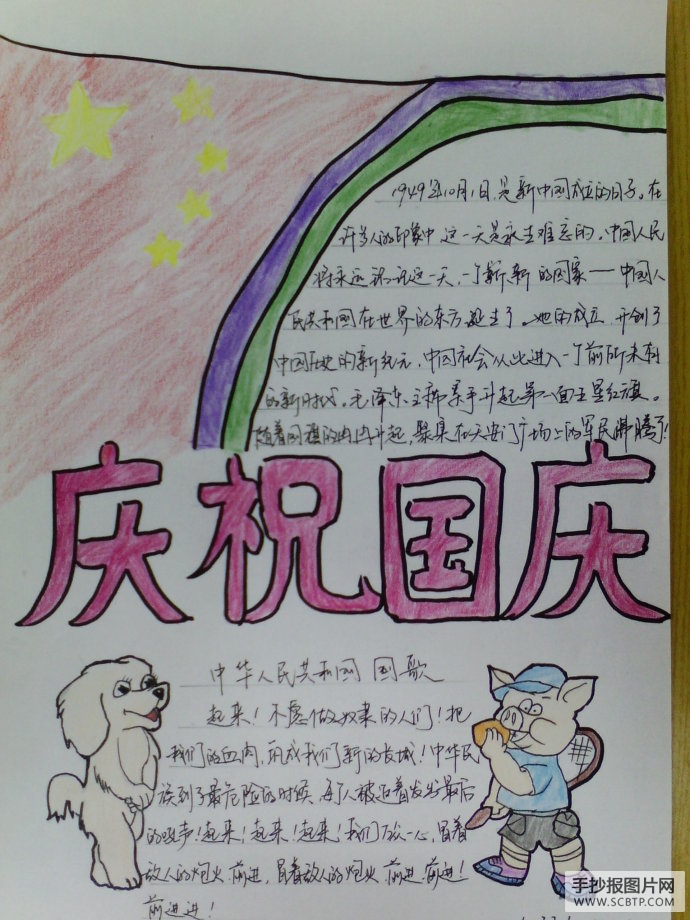 1949年10月1日,是新中国成立的日子。在
许多人的印象中这一天是永生难忘的。中国人民
将永远铭记这一天,一个崭新的国家——中国人
民共和国在世界的东方诞生了。她的成立,开创了
中国历史的新纪元,中国社会从此进入一个前所未有
的新时代。毛泽东主席亲手升起第一面五星红旗。
随着国旗的冉冉升起,聚集在天安门广场上的军民沸腾了!
庆祝国庆
中华人民共和国 国歌
起来!不愿做奴隶的人们!把
我们的血肉,筑成我们新的长城!中华民
族到了最危险的时候,每个人被迫着发出最后
的吼声!起来!起来!起来!我们万众一心,冒着
敌人的炮火 前进,冒着敌人的炮火 前进,前进!
前进进!
手抄报图片网
WWW.SCBTP.COM